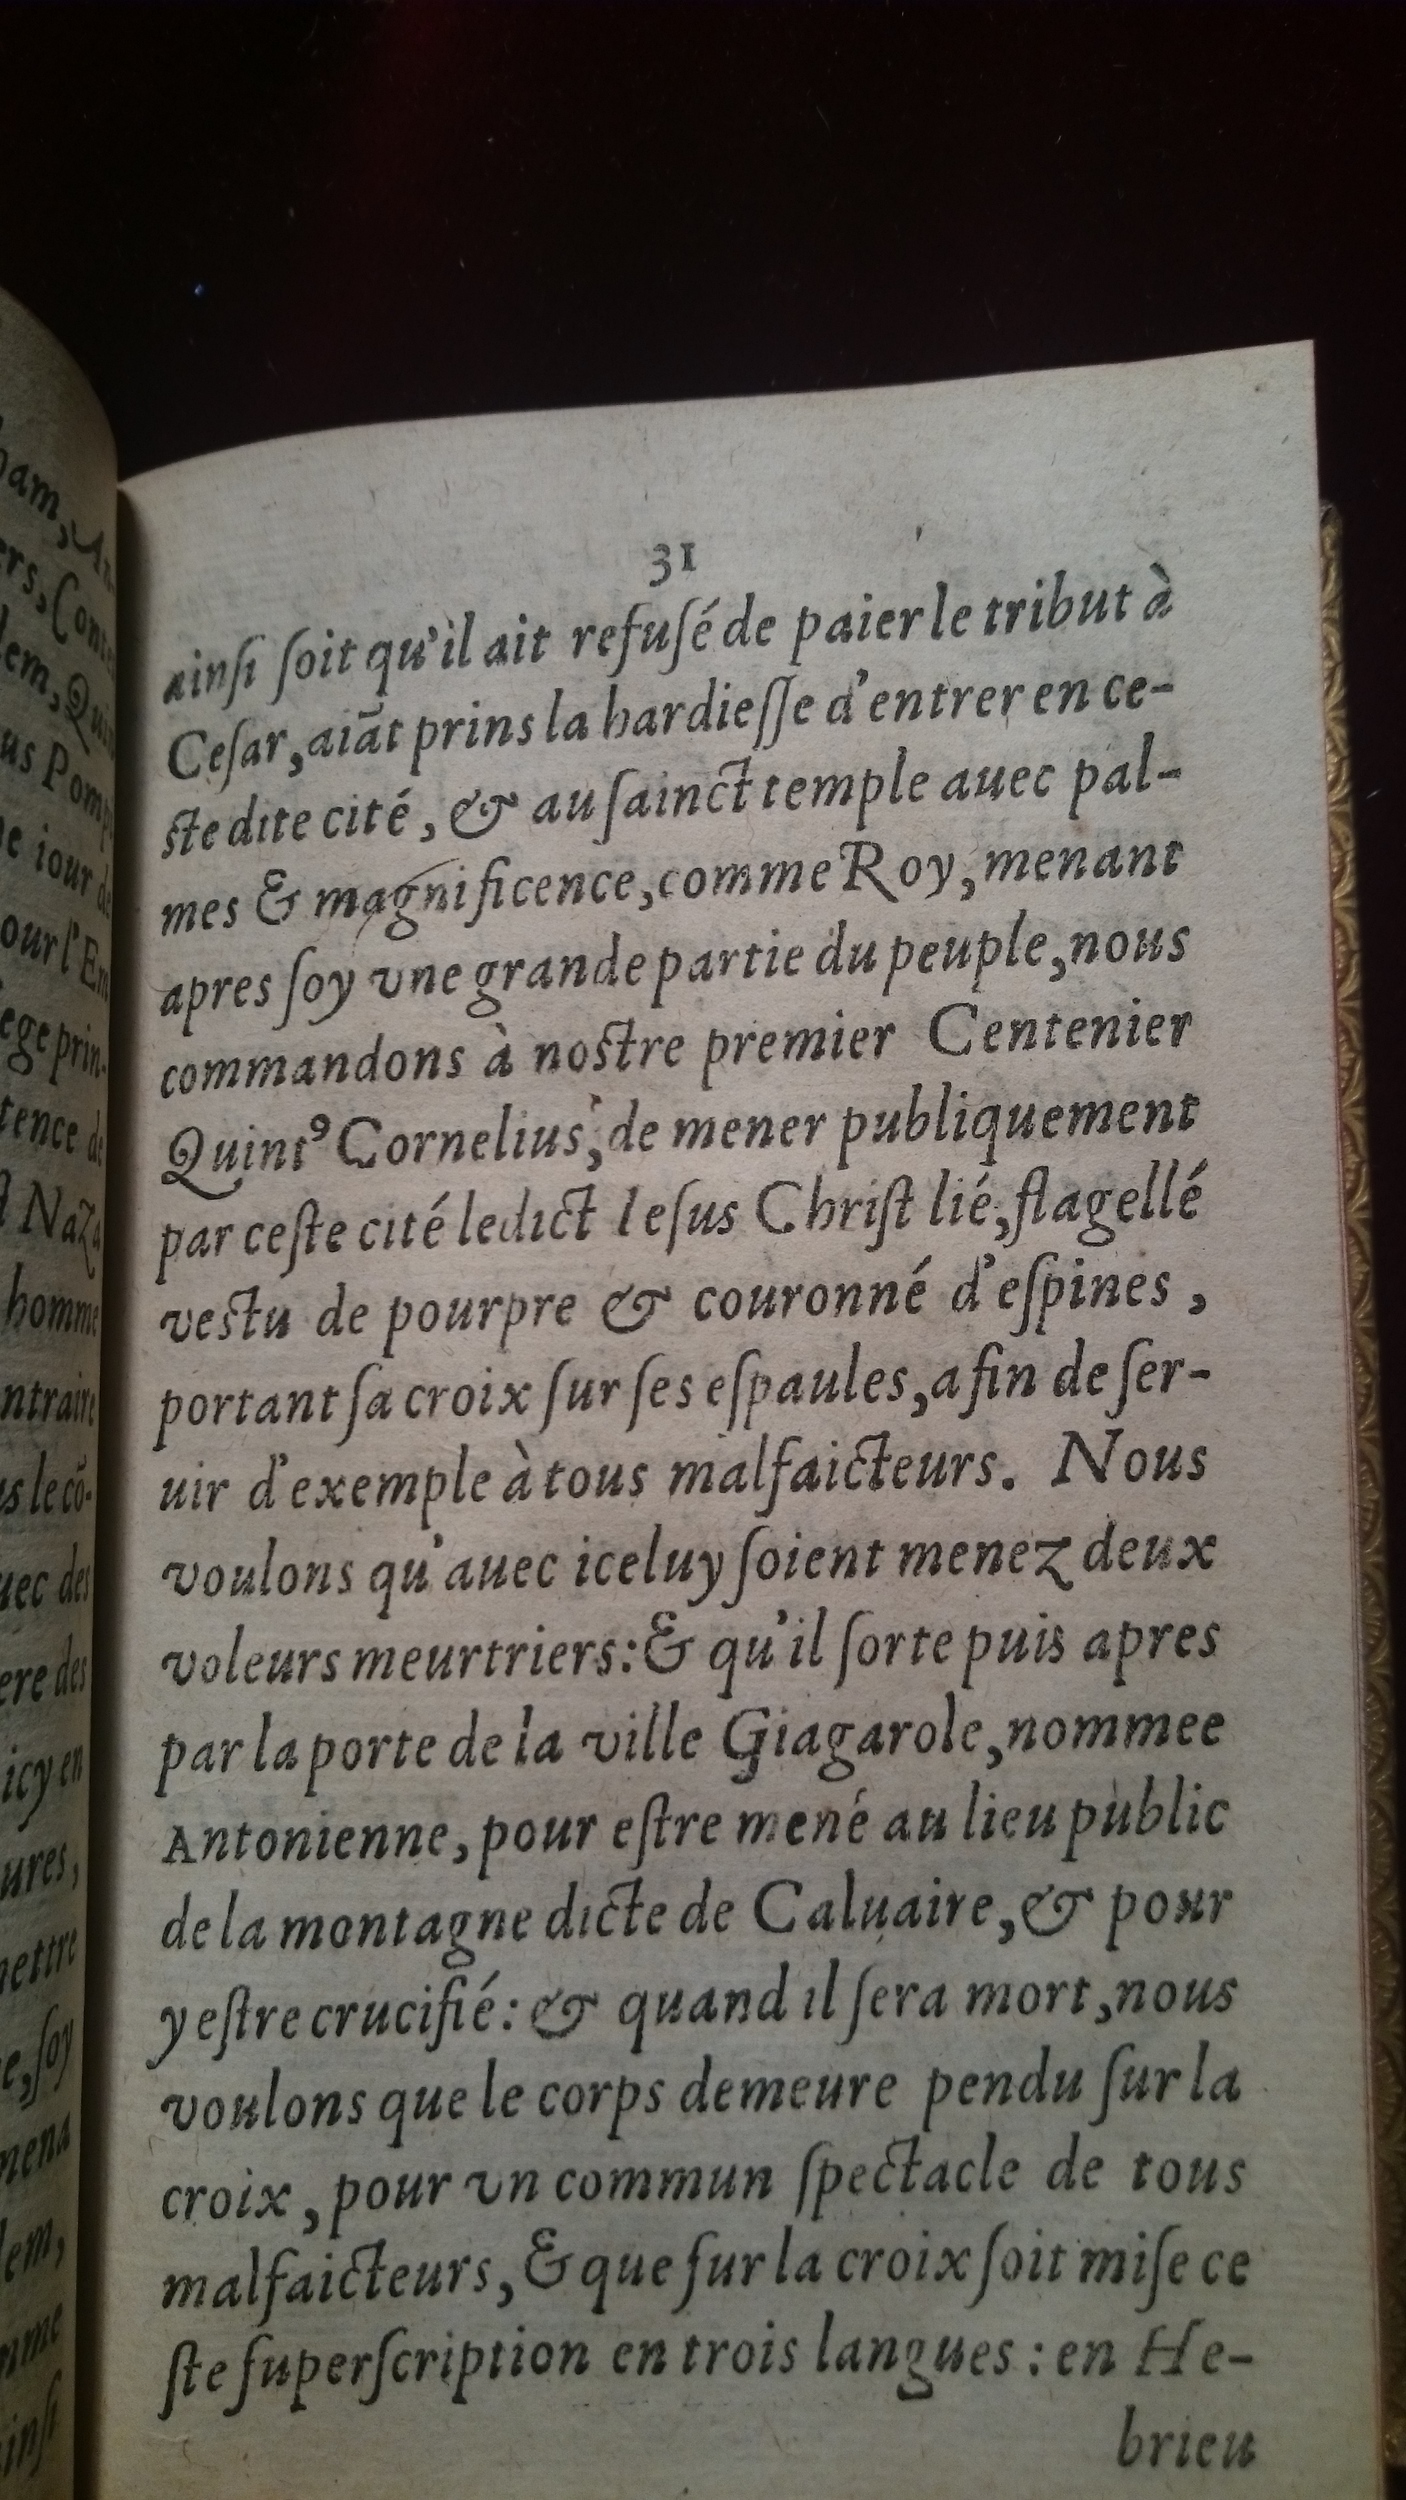 31
ainſi ſoit qu'il ait refuſé de paier le tribut à
Ceſar, aiāt prins la hardieſſe d'entrer en ce-
ſte dite cité, & au ſainct temple auec pal-
mes & magnificence, comme Roy, menant
apres ſoy vne grande partie du peuple, nous
commandons à noſtre premier Centenier
Quintꝰ Cornelius, de mener publiquement
par ceſte cité ledict Ieſus Chriſt lié, flagellé
veſtu de pourpre & couronné d'eſpines,
portant ſa croix ſur ſes eſpaules, afin de ſer-
uir d'exemple à tous malfaicteurs. Nous
voulons qu'auec iceluy ſoient menez deux
voleurs meurtriers: & qu'il ſorte puis apres
par la porte de la ville Giagarole, nommee
Antonienne, pour eſtre mené au lieu public
de la montagne dicte de Caluaire, & pour
y eſtre crucifié: & quand il ſera mort, nous
voulons que le corps demeure pendu ſur la
croix, pour vn commun ſpectacle de tous
malfaicteurs, & que ſur la croix ſoit miſe ce
ſte ſuperſcription en trois langues: en He-
brieu